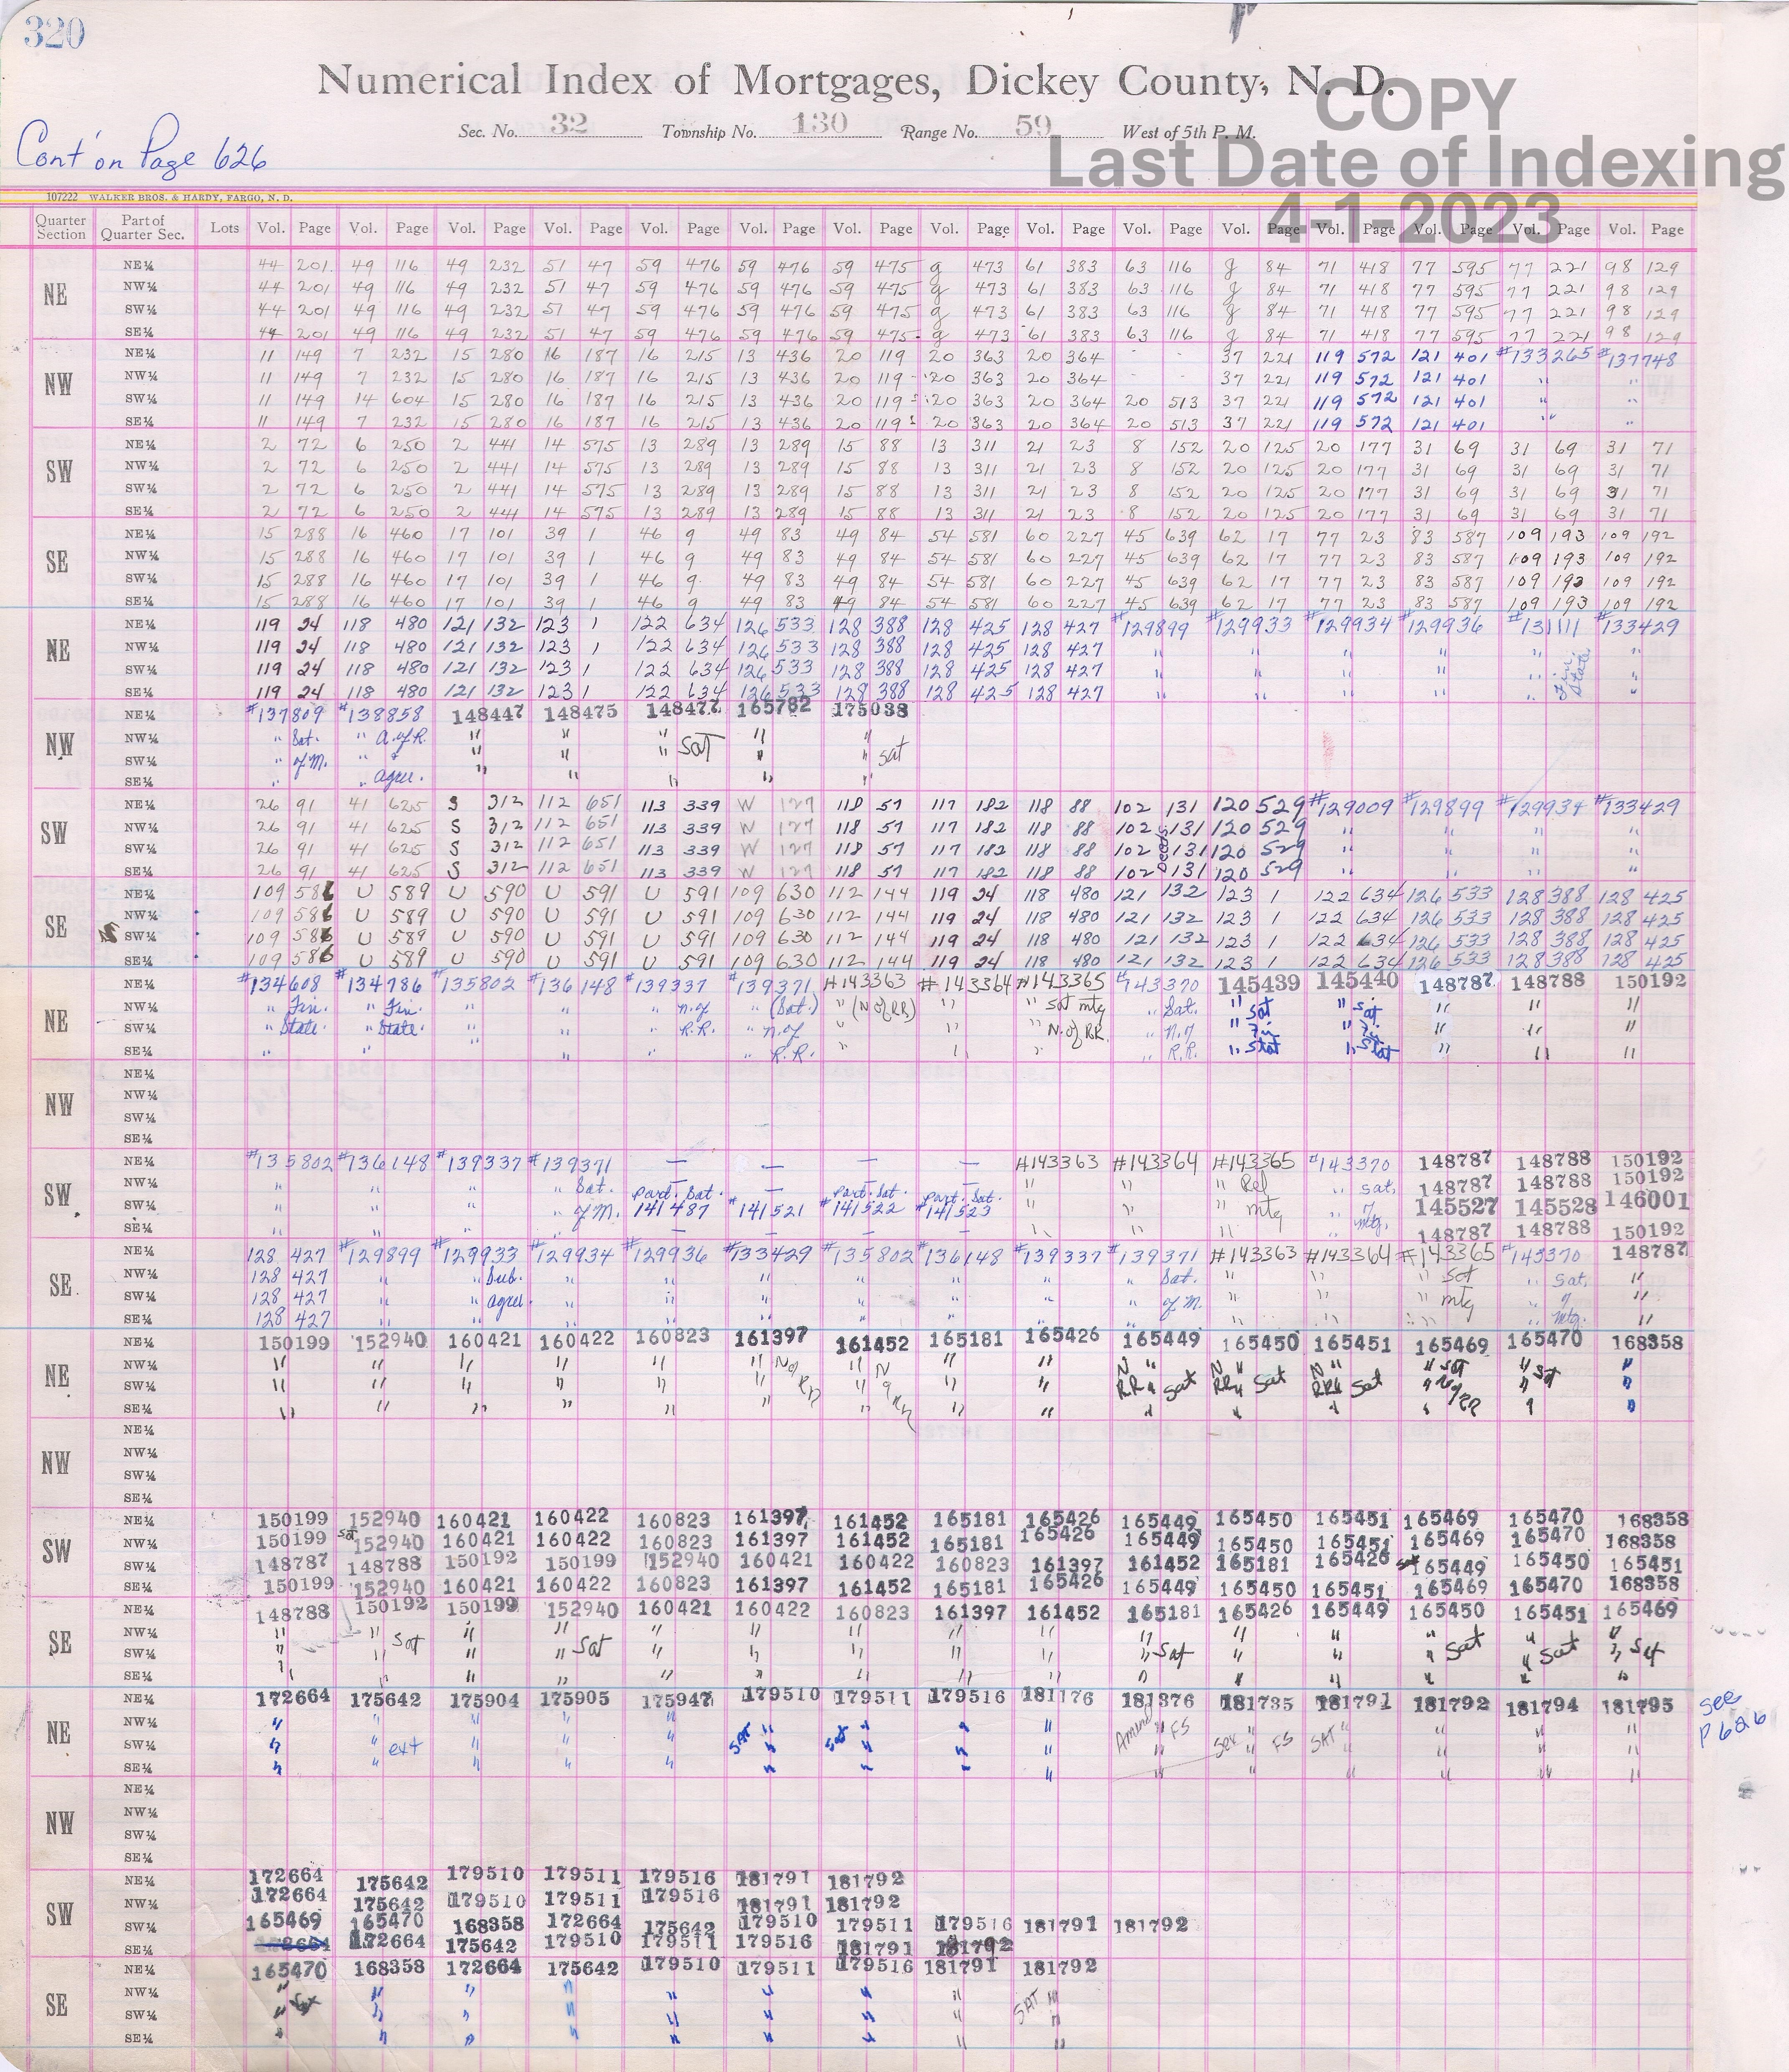 320
Numerical Index of Mortgages, Dickey County, N. D.
COPY
Sec. No. 32 Township No. 130 Range No. 59 West of 5th P. M.
Last Date of Indexing
4-1-2023
Cont'on Page 626
107222 WALKER BROS. & HARDY, FARGO, N. D.
Quarter Section Part of Quarter Sec. Lots Vol. Page Vol. Page Vol. Page Vol. Page Vol. Page Vol. Page Vol. Page Vol. Page Vol. Page Vol. Page Vol. Page Vol. Page Vol. Page Vol. Page Vol. Page
NE NE¼ 44 201 49 116 49 232 51 47 59 476 59 476 59 475 g 473 61 383 63 116 g 84 71 418 77 595 77 221 98 129
NW¼ 44 201 49 116 49 232 51 47 59 476 59 476 59 475 g 473 61 383 63 116 g 84 71 418 77 595 77 221 98 129
SW¼ 44 201 49 116 49 232 51 47 59 476 59 476 59 475 g 473 61 383 63 116 g 84 71 418 77 595 77 221 98 129
SE¼ 44 201 49 116 49 232 51 47 59 476 59 476 59 475 g 473 61 383 63 116 g 84 71 418 77 595 77 221 98 129
NW NE¼ 11 149 7 232 15 280 16 187 16 215 13 436 20 119 20 363 20 364 - - 37 221 119 572 121 401 #133265 #137748
NW¼ 11 149 7 232 15 280 16 187 16 215 13 436 20 119 20 363 20 364 - - 37 221 119 572 121 401 " "
SW¼ 11 149 14 604 15 280 16 187 16 215 13 436 20 119 20 363 20 364 20 513 37 221 119 572 121 401 " "
SE¼ 11 149 7 232 15 280 16 187 16 215 13 436 20 119 20 363 20 364 20 513 37 221 119 572 121 401 " "
SW NE¼ 2 72 6 250 2 441 14 575 13 289 13 289 15 88 13 311 21 23 8 152 20 125 20 177 31 69 31 69 31 71
NW¼ 2 72 6 250 2 441 14 575 13 289 13 289 15 88 13 311 21 23 8 152 20 125 20 177 31 69 31 69 31 71
SW¼ 2 72 6 250 2 441 14 575 13 289 13 289 15 88 13 311 21 23 8 152 20 125 20 177 31 69 31 69 31 71
SE¼ 2 72 6 250 2 441 14 575 13 289 13 289 15 88 13 311 21 23 8 152 20 125 20 177 31 69 31 69 31 71
SE NE¼ 15 288 16 460 17 101 39 1 46 9 49 83 49 84 54 581 60 227 45 639 62 17 77 23 83 587 109 193 109 192
NW¼ 15 288 16 460 17 101 39 1 46 9 49 83 49 84 54 581 60 227 45 639 62 17 77 23 83 587 109 193 109 192
SW¼ 15 288 16 460 17 101 39 1 46 9 49 83 49 84 54 581 60 227 45 639 62 17 77 23 83 587 109 193 109 192
SE¼ 15 288 16 460 17 101 39 1 46 9 49 83 49 84 54 581 60 227 45 639 62 17 77 23 83 587 109 193 109 192
NE NE¼ 119 24 118 480 121 132 123 1 122 634 126 533 128 388 128 425 128 427 #129899 #129933 #129934 #129936 #131111 #133429
NW¼ 119 24 118 480 121 132 123 1 122 634 126 533 128 388 128 425 128 427 " " " " " "
SW¼ 119 24 118 480 121 132 123 1 122 634 126 533 128 388 128 425 128 427 " " " " " Fin. State. "
SE¼ 119 24 118 480 121 132 123 1 122 634 126 533 128 388 128 425 128 427 " " " " " "
NW NE¼ #137809 #138858 148447 148475 148477 165782 175038
NW¼ " Sat. " A.of R. " " " Sat " "
SW¼ " of M. " & " " " " " sat
SE¼ " " agree. " " " " "
SW NE¼ 26 91 41 625 S 312 112 651 113 339 W 127 118 57 117 182 118 88 102 131 120 529 #129009 #129899 #129934 #133429
NW¼ 26 91 41 625 S 312 112 651 113 339 W 127 118 57 117 182 118 88 102 131 120 529 " " " "
SW¼ 26 91 41 625 S 312 112 651 113 339 W 127 118 57 117 182 118 88 102 Deeds 131 120 529 " " " "
SE¼ 26 91 41 625 S 312 112 651 113 339 W 127 118 57 117 182 118 88 102 131 120 529 " " " "
SE NE¼ 109 586 U 589 U 590 U 591 U 591 109 630 112 144 119 24 118 480 121 132 123 1 122 634 126 533 128 388 128 425
NW¼ 109 586 U 589 U 590 U 591 U 591 109 630 112 144 119 24 118 480 121 132 123 1 122 634 126 533 128 388 128 425
SW¼ 109 586 U 589 U 590 U 591 U 591 109 630 112 144 119 24 118 480 121 132 123 1 122 634 126 533 128 388 128 425
SE¼ 109 586 U 589 U 590 U 591 U 591 109 630 112 144 119 24 118 480 121 132 123 1 122 634 126 533 128 388 128 425
NE NE¼ #134608 #134786 #135802 #136148 #139337 #139371 #143363 #143364 #143365 #143370 145439 145440 148787 148788 150192
NW¼ " Fin. " Fin. " " " n.of " (Sat.) " (N of RR) " " Sat mtg " Sat. " Sat " Sat " " "
SW¼ " State. " State. " " " R.R. " n.of " " " N. of RR. " n.of " Fin " Fin " " "
SE¼ " " " " " " R.R. " " " " R.R. " Stat " Stat " " "
NW NE¼
NW¼
SW¼
SE¼
SW NE¼ #135802 #136148 #139337 #139371 — — — — #143363 #143364 #143365 #143370 148787 148788 150192
NW¼ " " " " Sat. Part. Sat. — Part. Sat. Part. Sat. " " " Rel " sat, 148787 148788 150192
SW¼ " " " " of M. 141487 #141521 #141522 #141523 " " " mtg " of 145527 145528 146001
SE¼ " " " " — — — — " " " " mtg. 148787 148788 150192
SE NE¼ 128 427 #129899 #129933 #129934 #129936 #133429 #135802 #136148 #139337 #139371 #143363 #143364 #143365 #143370 148787
NW¼ 128 427 " " Sub. " " " " " " " Sat. " " " Sat " Sat, "
SW¼ 128 427 " " agree. " " " " " " " of M. " " " mtg " of "
SE¼ 128 427 " " " " " " " " " " " " " mtg. "
NE NE¼ 150199 152940 160421 160422 160823 161397 161452 165181 165426 165449 165450 165451 165469 165470 168358
NW¼ " " " " " " N of " N " " N " N " N " " Sat " "
SW¼ " " " " " " RR " of RR " " RR " Sat RR " Sat RR " Sat " N of " Sat "
SE¼ " " " " " " " " " " " " " RR " "
NW NE¼
NW¼
SW¼
SE¼
SW NE¼ 150199 152940 160421 160422 160823 161397 161452 165181 165426 165449 165450 165451 165469 165470 168358
NW¼ 150199 sat 152940 160421 160422 160823 161397 161452 165181 165426 165449 165450 165451 165469 165470 168358
SW¼ 148787 148788 150192 150199 152940 160421 160422 160823 161397 161452 165181 165426 sat 165449 165450 165451
SE¼ 150199 152940 160421 160422 160823 161397 161452 165181 165426 165449 165450 165451 165469 165470 168358
SE NE¼ 148788 150192 150199 152940 160421 160422 160823 161397 161452 165181 165426 165449 165450 165451 165469
NW¼ " " " " " " " " " " " " " " "
SW¼ " " Sat " " Sat " " " " " " Sat " " " Sat " Sat " Sat
SE¼ " " " " " " " " " " " " " " "
NE NE¼ 172664 175642 175904 175905 175947 179510 179511 179516 181176 181376 181735 181791 181792 181794 181795 see
NW¼ " " " " " " " " " Amend " FS " " " " " P 626
SW¼ " " ext " " " Sat " Sat " " " " Ser " FS SAT " " " "
SE¼ " " " " " " " " " " " " " " "
NW NE¼
NW¼
SW¼
SE¼
SW NE¼ 172664 175642 179510 179511 179516 181791 181792
NW¼ 172664 175642 179510 179511 179516 181791 181792
SW¼ 165469 165470 168358 172664 175642 179510 179511 179516 181791 181792
SE¼ 172664 175642 179510 179511 179516 181791 181792
SE NE¼ 165470 168358 172664 175642 179510 179511 179516 181791 181792
NW¼ " " " " " " " " "
SW¼ " Sat " " " " " " " SAT "
SE¼ " " " " " " " " "